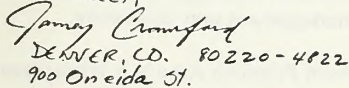 Jamey Crawford
DENVER, CO. 80220-4822
900 Oneida St.